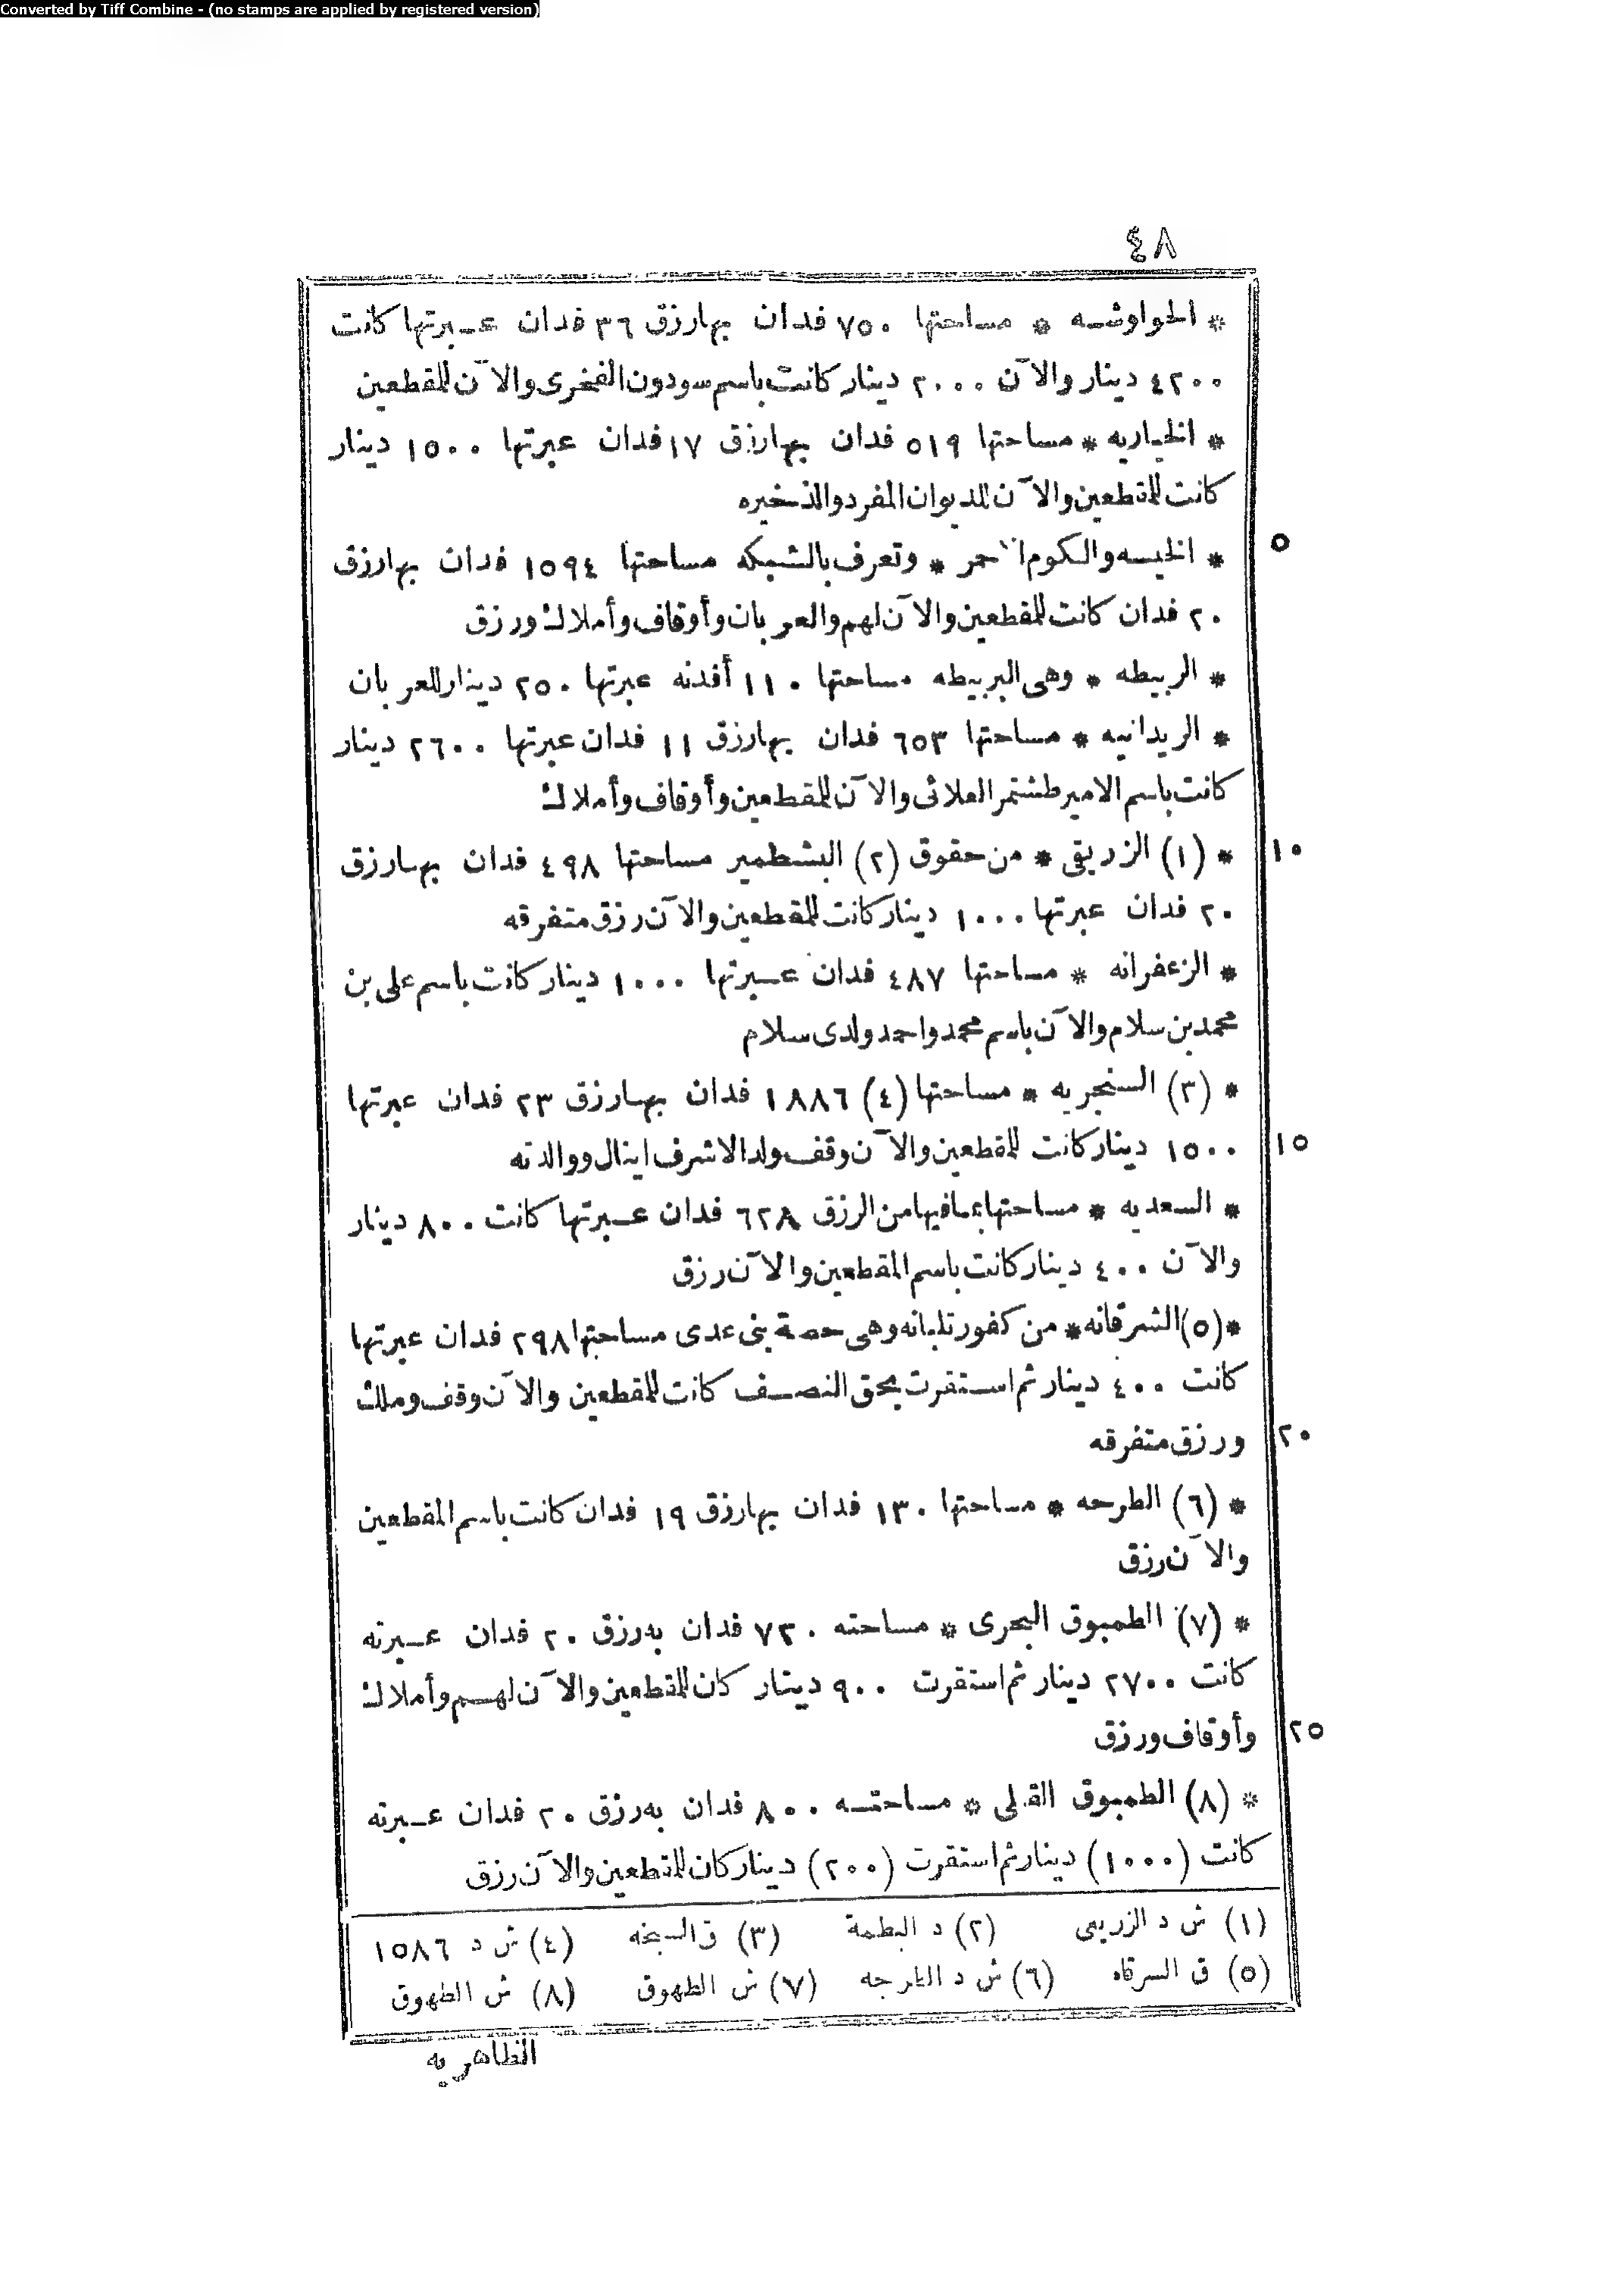 Converted by Tiff Combine - (no stamps are applied by registered version)
٤٨
* الحواوشه * مساحتها ٧٥٠ فدان بهارزق ٣٦ فدان عبرتها كانت
٤٢٠٠ دينار والآن ٢٠٠٠ دينار كانت باسم سودون الفخرى والآن للمقطعين
* الخياريه * مساحتها ٥١٩ فدان بهارزق ١٧ فدان عبرتها ١٥٠٠ دينار
كانت للمقطعين والآن للديوان المفرد والذخيره
٥
* الخيسه والكوم الاحمر * وتعرف بالشبكه مساحتها ١٥٩٤ فدان بهارزق
٢٠ فدان كانت للمقطعين والآن لهم والعربان وأوقاف وأملاك ورزق
* الربيطه * وهى البربيطه مساحتها ١١٠ أفدنه عبرتها ٢٥٠ دينار للعربان
* الريدانيه * مساحتها ٦٥٣ فدان بهارزق ١١ فدان عبرتها ٢٦٠٠ دينار
كانت باسم الامير طشتمر العلائى والآن للمقطعين وأوقاف وأملاك
١٠
* (١) الزريقى * من حقوق (٢) البشطمير مساحتها ٤٩٨ فدان بهارزق
٢٠ فدان عبرتها ١٠٠٠ دينار كانت للمقطعين والآن رزق متفرقه
* الزعفرانه * مساحتها ٤٨٧ فدان عبرتها ١٠٠٠ دينار كانت باسم على بن
محمد بن سلام والآن باسم محمد واحمد ولدى سلام
* (٣) السنجريه * مساحتها (٤) ١٨٨٦ فدان بهارزق ٢٣ فدان عبرتها
١٥
١٥٠٠ دينار كانت للمقطعين والآن وقف ولد الاشرف اينال ووالدته
* السعديه * مساحتها بما فيها من الرزق ٦٢٨ فدان عبرتها كانت ٨٠٠ دينار
والآن ٤٠٠ دينار كانت باسم المقطعين والآن رزق
* (٥) الشرقانه * من كفور تلبانه وهى حصة بنى عدى مساحتها ٢٩٨ فدان عبرتها
كانت ٤٠٠ دينار ثم استقرت بحق النصف كانت للمقطعين والآن وقف وملك
٢٠
ورزق متفرقه
* (٦) الطرحه * مساحتها ١٣٠ فدان بهارزق ١٩ فدان كانت باسم المقطعين
والآن رزق
* (٧) الطمبوق البحرى * مساحته ٧٣٠ فدان به رزق ٢٠ فدان عبرته
كانت ٢٧٠٠ دينار ثم استقرت ٩٠٠ دينار كان للمقطعين والآن لهم وأملاك
٢٥
وأوقاف ورزق
* (٨) الطمبوق القبلى * مساحته ٨٠٠ فدان به رزق ٢٠ فدان عبرته
كانت (١٠٠٠) دينار ثم استقرت (٢٠٠) دينار كان للمقطعين والآن رزق
(١) ش د الزريعى (٢) د البطمة (٣) ق السبخه (٤) ش د ١٥٨٦
(٥) ق السرقاه (٦) ش د الطرجه (٧) ش الطهوق (٨) ش الطهوق
الظاهريه